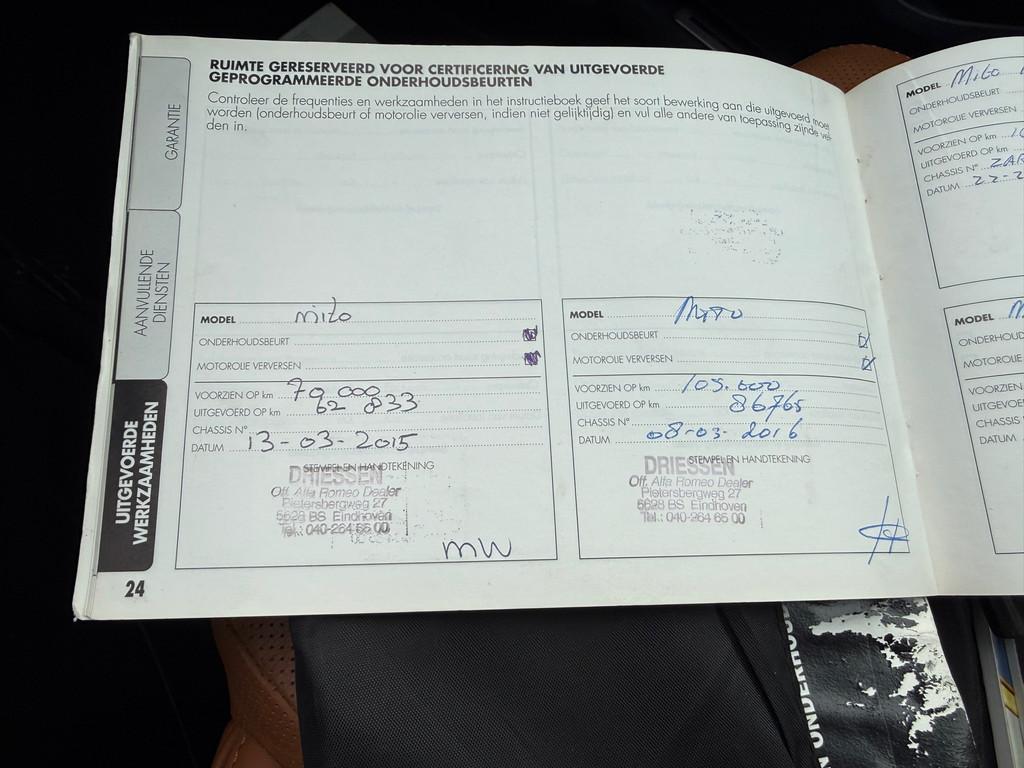 RUIMTE GERESERVEERD VOOR CERTIFICERING VAN UITGEVOERDE
GEPROGRAMMEERDE ONDERHOUDSBEURTEN
Controleer de frequenties en werkzaamheden in het instructieboek geef het soort bewerking aan die uitgevoerd moet
worden (onderhoudsbeurt of motorolie verversen, indien niet gelijktijdig) en vul alle andere van toepassing zijnde vel-
den in.
GARANTIE
AANVULLENDE
DIENSTEN
UITGEVOERDE
WERKZAAMHEDEN
MODEL mito
ONDERHOUDSBEURT
MOTOROLIE VERVERSEN
VOORZIEN OP km 70 000
UITGEVOERD OP km 62 833
CHASSIS N°
DATUM 13-03-2015
STEMPEL EN HANDTEKENING
DRIESSEN
Off. Alfa Romeo Dealer
Pietersbergweg 27
5628 BS Eindhoven
Tel.: 040-264 65 00
mw
MODEL Mito
ONDERHOUDSBEURT
MOTOROLIE VERVERSEN
VOORZIEN OP km 105.000
UITGEVOERD OP km 86765
CHASSIS N°
DATUM 08-03-2016
STEMPEL EN HANDTEKENING
DRIESSEN
Off. Alfa Romeo Dealer
Pietersbergweg 27
5628 BS Eindhoven
Tel.: 040-264 65 00
24
MODEL Mito
ONDERHOUDSBEURT
MOTOROLIE VERVERSEN
VOORZIEN OP km
UITGEVOERD OP km
CHASSIS N° ZAR
DATUM 22-2
MODEL M
ONDERHOUD
MOTOROLIE
VOORZIEN
UITGEVOE
CHASSIS N
DATUM
N ONDERHOU